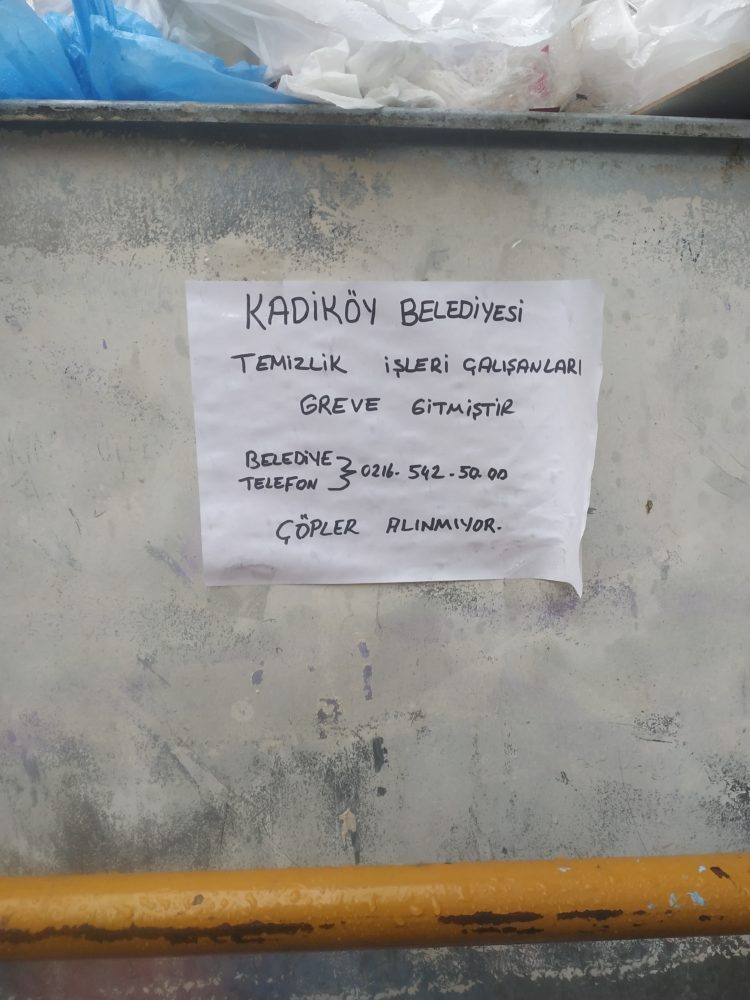 KADİKÖY BELEDİYESİ
TEMİZLİK İŞLERİ ÇALIŞANLARI
GREVE GİTMİŞTİR
BELEDİYE
TELEFON } 0216. 542. 50.00
ÇÖPLER ALINMIYOR.